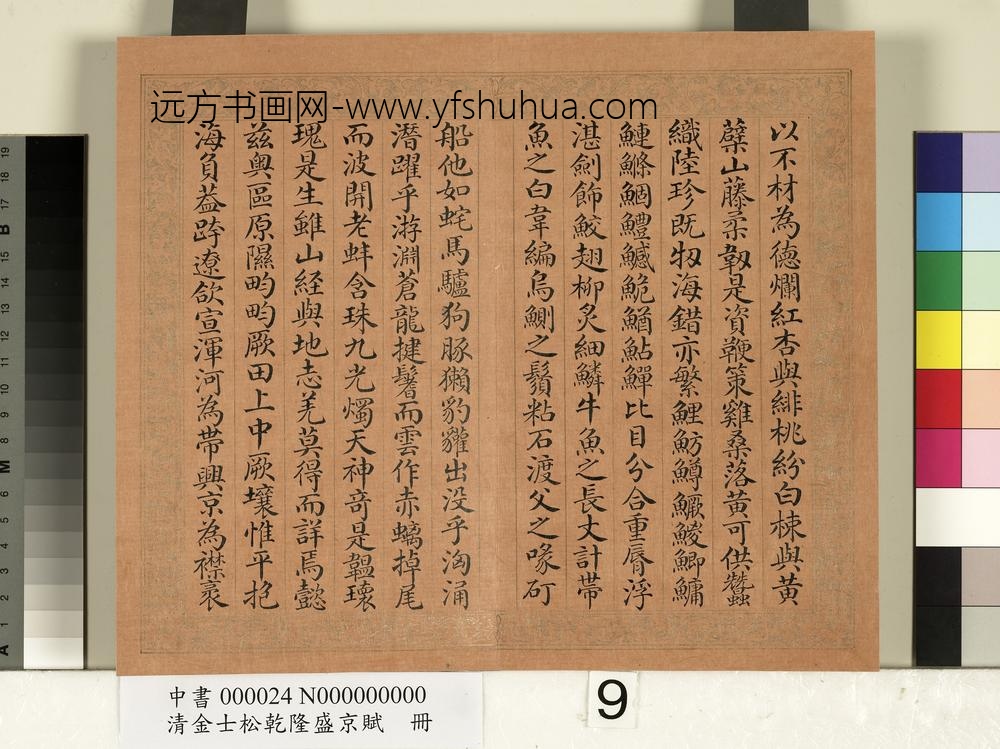 远方书画网-www.yfshuhua.com
以不材為德爛紅杏與緋桃紛白棟與黃
蘖山藤柔韌是資鞭策雞桑落黃可供蠶
織陸珍既牣海錯亦繁鯉魴鱒鱖鯼鯽鱅
鰱鰷鯝鱧鱤鮠鰌鮎鱓比目分合重脣浮
湛劍飾鮫翅柳炙細鱗牛魚之長丈計帶
魚之白韋編烏鰂之鬚粘石渡父之喙矴
船他如蛇馬驢狗豚獺豹貛出没乎洶涌
潛躍乎游淵蒼龍揵鬐而雲作赤螭掉尾
而波開老蚌含珠九光燭天神奇是韞瓌
瑰是生雖山經與地志羌莫得而詳焉懿
茲輿區原隰畇畇厥田上中厥壤惟平抱
海負葢跨遼欱宣渾河為帶興京為襟裘
中書 000024 N000000000
清金士松乾隆盛京賦 冊
9
B
M
A
19
18
17
16
15
14
13
12
11
10
9
8
7
6
5
4
3
2
1